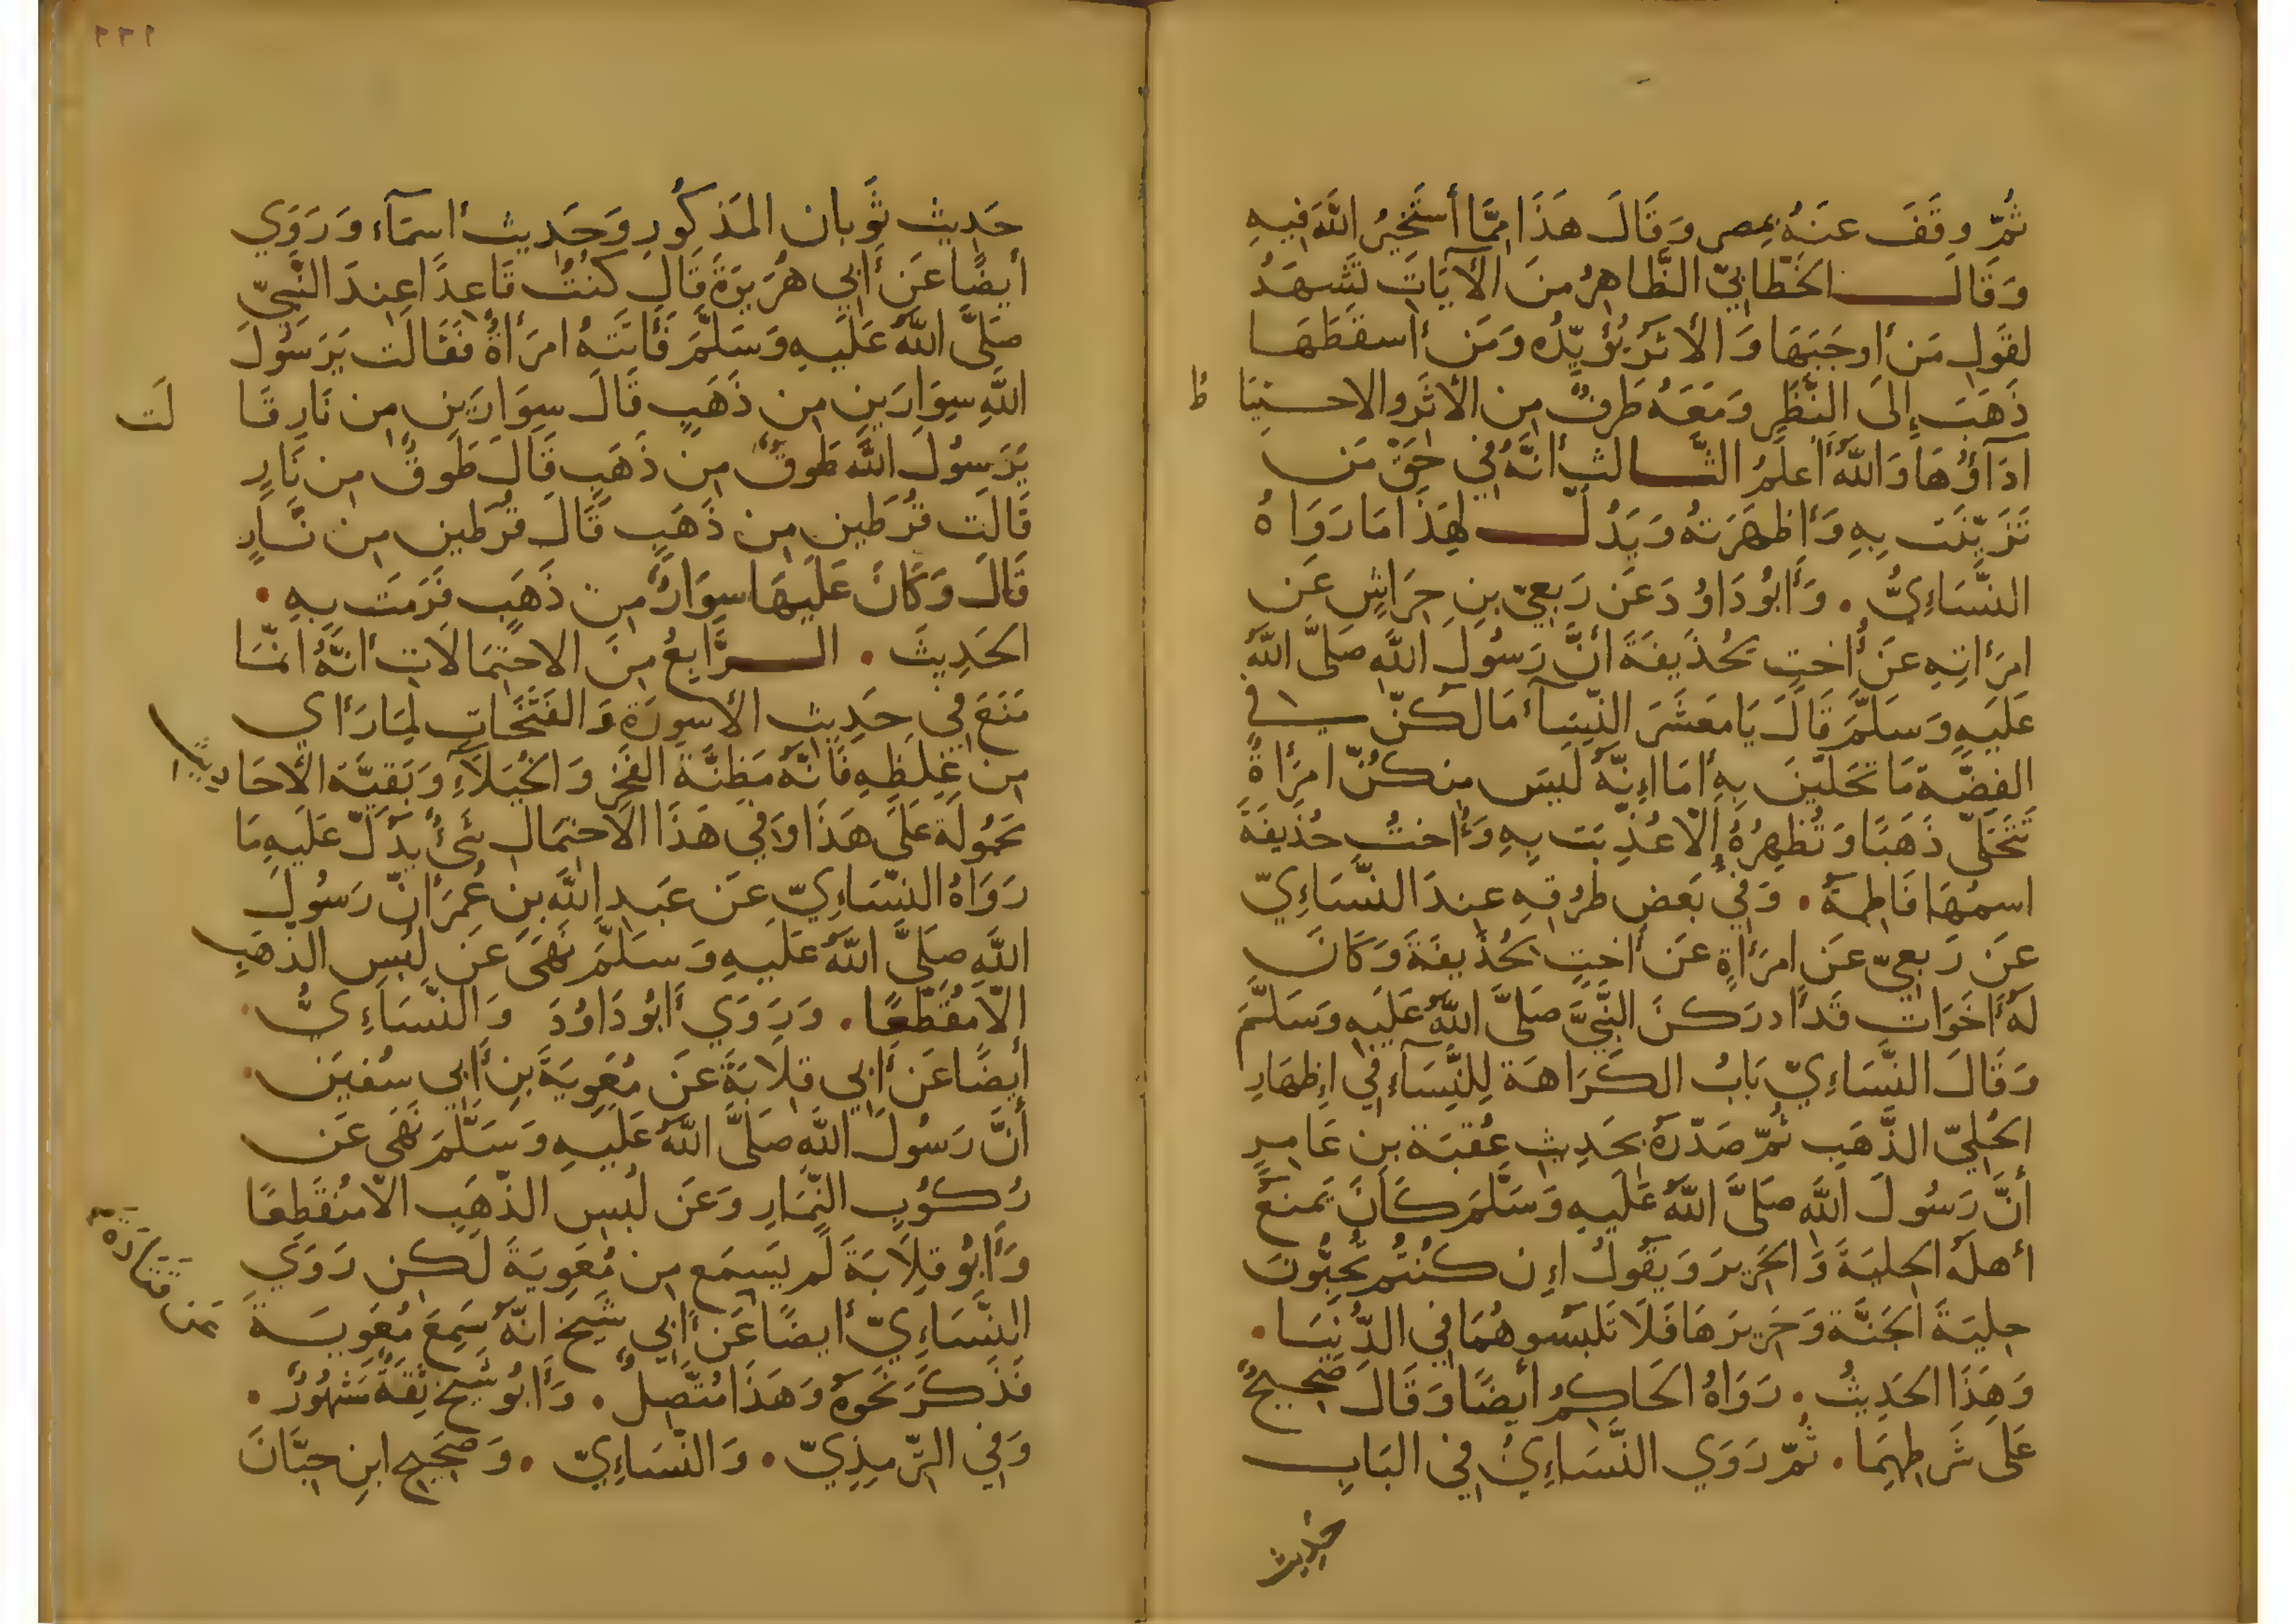 ثُمّ وقَفَ عنَهُ بمِصر وَقَالَ هَذَا ممَّا أستَخيرُ اللَّهَ فيهِ
وَقَالَ الخَطّابيّ الظَّاهِرُ منَ الآيَاتِ تَشهَدُ
لقَولِ مَن أوجَبَهَا وَالأثَرُ يُؤَيّدُه وَمَن أسقَطَهَا
ذَهَبَ إلَى النَّظَرِ وَمَعَهُ طَرفٌ مِن الأثَر والاحتيَا ط
أدَآؤُهَا وَاللَّهُ أعلَمُ الثَّالث أنَّهُ في حَقّ مَن
تَزَيّنَت بِهِ وَأظهَرَتهُ وَيَدُلّ لِهَذَا مَا رَوَاهُ
النَّسَاءِيُّ . وَأبُو دَاوُدَ عَن رَبعِيّ بنِ حِرَاشٍ عَن
امرَأتِهِ عَن أُختٍ لحُذَيفَةَ أنَّ رَسُولَ اللَّهِ صَلَّى اللَّهُ
عَلَيهِ وَسَلَّمَ قَالَ يَا مَعشَرَ النِّسَآء مَالَكُنّ في
الفِضَّة مَا تَحَلَّينَ بِهِ أمَا إنّهُ لَيسَ مِنكُنّ امرَأةٌ
تَتَحَلَّى ذَهَبًا وَتُظهِرُهُ إلّا عُذِّبَت بِهِ وَأُختُ حُذَيفَةَ
اسمُهَا فَاطِمَةُ . وَفي بَعضِ طُرُقِهِ عِندَ النَّسَاءِيّ
عَن رَبعِيّ عَن امرَأةٍ عَن أختٍ لحُذَيفَةَ وَكَانَ
لَهُ أخَوَات قَد أدرَكنَ النَّبِيَّ صَلَّى اللَّهُ عَلَيهِ وَسَلَّمَ
وَقَالَ النَّسَاءِيّ بَابُ الكَرَاهَة لِلنِّسَآءِ في إظهَارِ
الحُلِيّ الذَّهَب ثُمّ صَدّرَهُ بحَدِيثِ عُقبَة بنِ عَامِرٍ
أنَّ رَسُولَ اللَّهِ صَلَّى اللَّهُ عَلَيهِ وَسَلَّمَ كَانَ يَمنَعُ
أهلَهُ الحِليَةَ وَالحَرِيرَ وَيَقُولُ إن كُنتُم تُحِبُّونَ
حِليَةَ الجَنَّة وَحَرِيرَهَا فَلَا تَلبَسُوهُمَا في الدُّنيَا .
وَهَذَا الحَدِيثُ . رَوَاهُ الحَاكِمُ أيضًا وَقَالَ صَحِيحٌ
عَلَى شَرطِهِمَا . ثُمّ رَوَى النَّسَاءِيّ في البَابِ
حَدِيثَ
١٢١
حَدِيث ثَوبان المَذكُورِ وَحَدِيث أسمَآء وَرَوَي
أيضًا عَن أبي هُرَيرَةَ قَالَ كُنتُ قَاعِدًا عِندَ النَّبِيّ
صَلَّى اللَّهُ عَلَيهِ وَسَلَّمَ فَأتَتهُ امرَأةٌ فَقَالَت يَرَسُولَ
اللَّهِ سِوَارَينِ مِن ذَهَبٍ قَالَ سِوَارَينِ مِن نَارٍ قَا لَت
يَرَسُولَ اللَّهِ طَوقٌ مِن ذَهَبٍ قَالَ طَوقٌ مِن نَارٍ
قَالَت قُرطَينِ مِن ذَهَبٍ قَالَ قُرطَينِ مِن نَّارٍ
قَالَ وَكَانَ عَلَيهَا سِوَارٌ مِن ذَهَبٍ فَرَمَت بِهِ .
الحَدِيثَ . الرَّابِعُ مِنَ الاحتِمَالَاتِ أنَّهُ انمَّا
مَنَعَ في حَدِيث الأسوِرَة وَالفَتَخَاتِ لِمَا رَأى
مِن غِلَظِهِ فَانَّهُ مَظِنَّةُ الفَخرِ وَالخُيَلَآءِ وَبَقِيَّة الأحَا ديث
محمُولَة عَلَى هَذَا وَفي هَذَا الاحتِمَالِ شَيءٌ يَدُلّ عَلَيهِ مَا
رَوَاهُ النَّسَاءِيّ عَن عَبدِ اللَّهِ بنِ عُمَرَ أنّ رَسُولَ
اللَّهِ صَلَّى اللَّهُ عَلَيهِ وَسَلَّمَ نَهَى عَن لُبسِ الذّهَبِ
الّا مُقَطّعًا . وَرَوَي أبُو دَاوُدَ وَالنَّسَاءِيُّ .
أيضًا عَن أبي قِلَابَةَ عَن مُعَوِيَةَ بنِ أبي سُفيَن .
أنَّ رَسُولَ اللَّهِ صَلَّى اللَّهُ عَلَيهِ وَسَلَّمَ نَهَى عَن
رُكُوبِ النِّمَارِ وَعَن لُبسِ الذّهَبِ الّا مُقَطَّعًا
وَأبُو قِلَابَةَ لَم يَسمَع مِن مُعَوِيَةَ لَكِن رَوَي
النَّسَاءِيّ أيضًا عَن أبي شَيخ انّهُ سَمِعَ مُعَوِيَةَ
عَن قَتَادَةَ
فَذَكَرَ نَحوَهُ وَهَذَا مُتَّصِلٌ . وَأبُو شَيخ ثِقَةٌ مَشهُورٌ .
وَفي التِّرمِذِيّ . وَالنَّسَاءِيّ . وَصَحِيحِ ابنِ حِبَّانَ